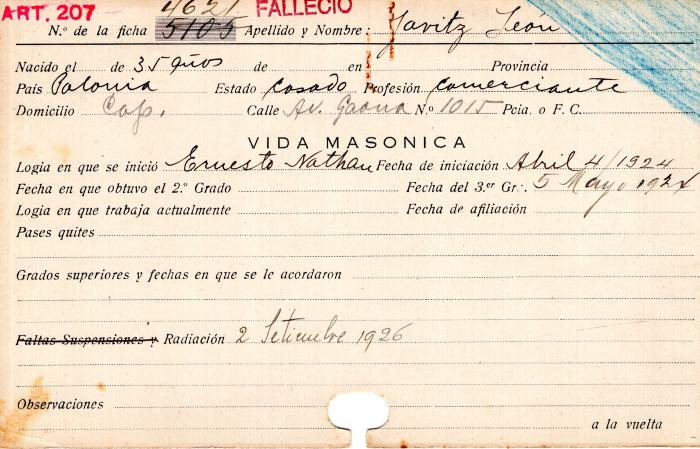 ART. 207 4621 FALLECIO
N.º de la ficha 5105 Apellido y Nombre: Javitz Leon
Nacido el de 35 años de en Provincia
País Polonia Estado casado Profesión comerciante
Domicilio Cap. Calle Av. Gaona N.º 1015 Pcia. o F. C.
VIDA MASONICA
Logia en que se inició Ernesto Nathan Fecha de iniciación Abril 4/1924
Fecha en que obtuvo el 2.º Grado Fecha del 3.er Gr∴ 5 Mayo 1924
Logia en que trabaja actualmente Fecha de afiliación
Pases quites
Grados superiores y fechas en que se le acordaron
Faltas Suspensiones y Radiación 2 Setiembre 1926
Observaciones
a la vuelta